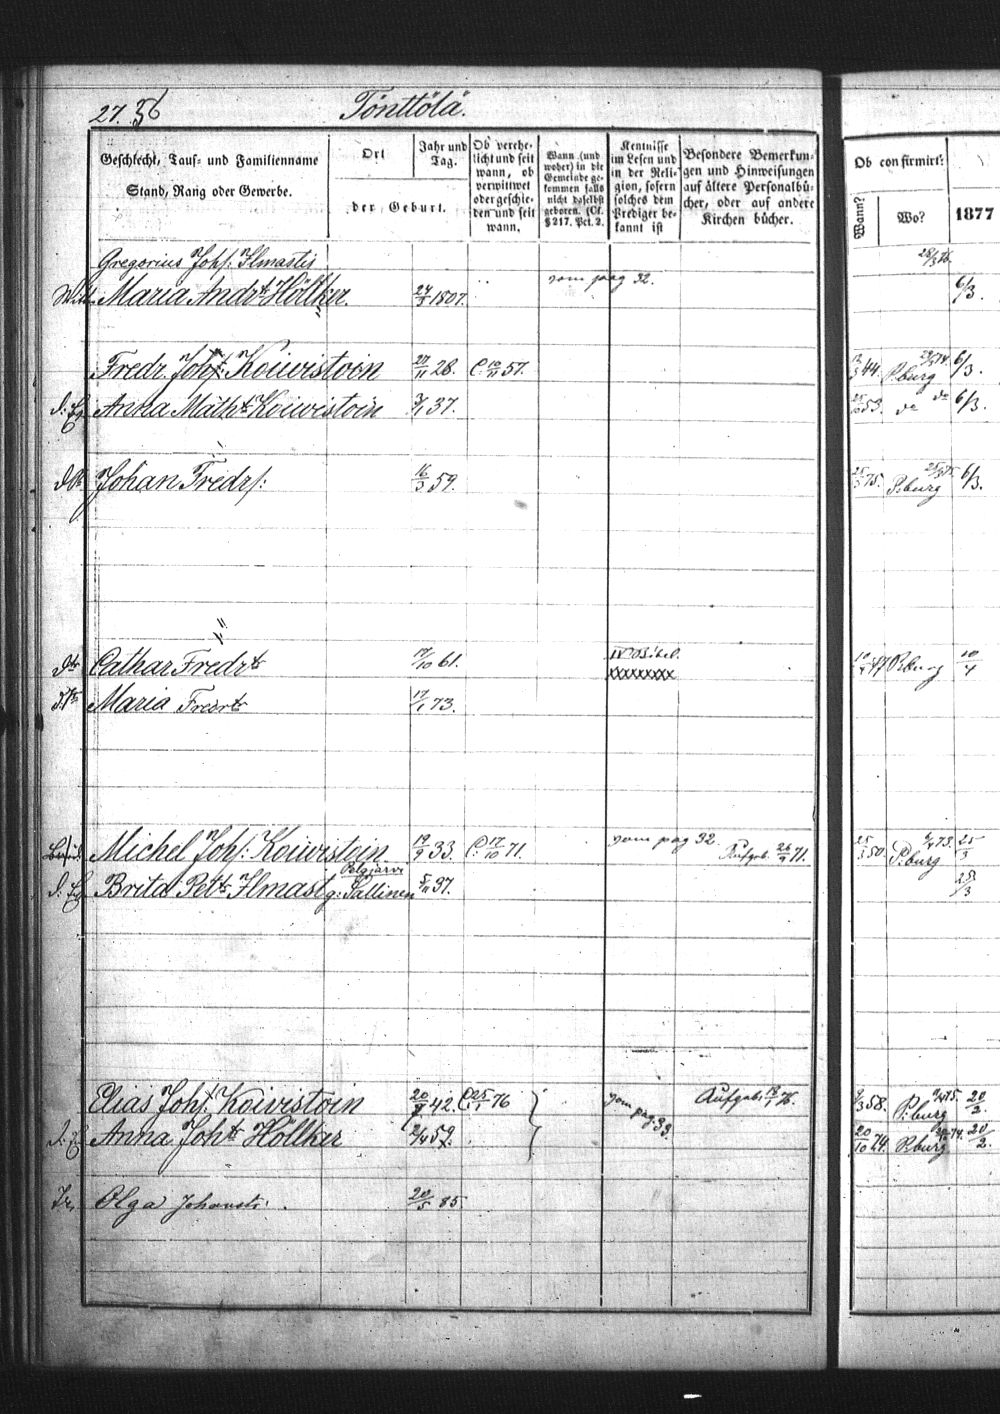 27. 56 Tönttölä.
Geschlecht, Tauf- und Familienname
Stand, Rang oder Gewerbe.
Ort
der Geburt.
Jahr und
Tag.
Ob verehe-
licht und seit
wann, ob
verwittwet
oder geschie-
den und seit
wann.
Wann (und
woher) in die
Gemeinde ge-
kommen falls
nicht daselbst
geboren. (Cf.
§ 217. Pct. 2.
Kentnisse
im Lesen und
in der Reli-
gion, sofern
solches dem
Prediger be-
kannt ist
Besondere Bemerkun-
gen und Hinweisungen
auf ältere Personalbü-
cher, oder auf andere
Kirchen bücher.
Ob confirmirt?
Wann?
Wo?
1877
Gregorius Johs: Ilmastis
Maria Andrts Höllker. 24/3 1807. vom pag 32. 6/3.
Fredr. Johs: Koivistoin 27/11 28. C. 12/11 57. P.burg 6/3.
d. Eg. Anna Mathts Koivistoin 37. 53. do do 6/3.
Johan Fredrs: 16/3 59. 75. P.burg 6/3.
Cathar Fredrts 17/10 61. P.burg 10/4
Maria Fredrts 17/1 73.
Michel Johs: Koivistoin 19/9 33. C. 17/10 71. vom pag 32. Aufgeb. 26/9 71. 25/3 50. P.burg 25/3
Pelgjärvi
d. Eg. Brita Petts Ilmast g: Sallinen 5/11 37. 25/3
Elias Johs: Koivistoin 42. C 25/1 76 vom pag. 33. Aufgeb. 76. 58. P.burg 20/2
d. Eg Anna Johts Höllker 2/4 59. 20/10 74. P.burg 20/2.
Olga Johansts. 20/5 85.